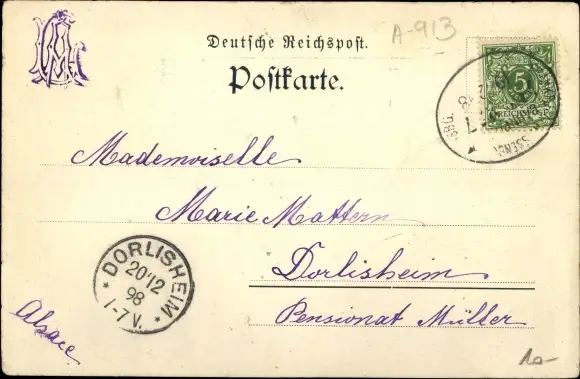 A-913
Deutsche Reichspost.
Postkarte.
5
Mademoiselle
Marie Mattern
Dorlisheim
Pensionat Müller
DORLISHEIM
20/12
98
1-7 V.
Alsace